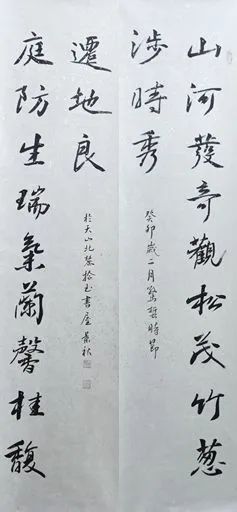 山河發奇觀松茂竹蔥
涉時秀
癸卯歲二月驚蟄時節
庭防生瑞氣蘭馨桂馥
遷地良
於天山北麓拾玉書屋